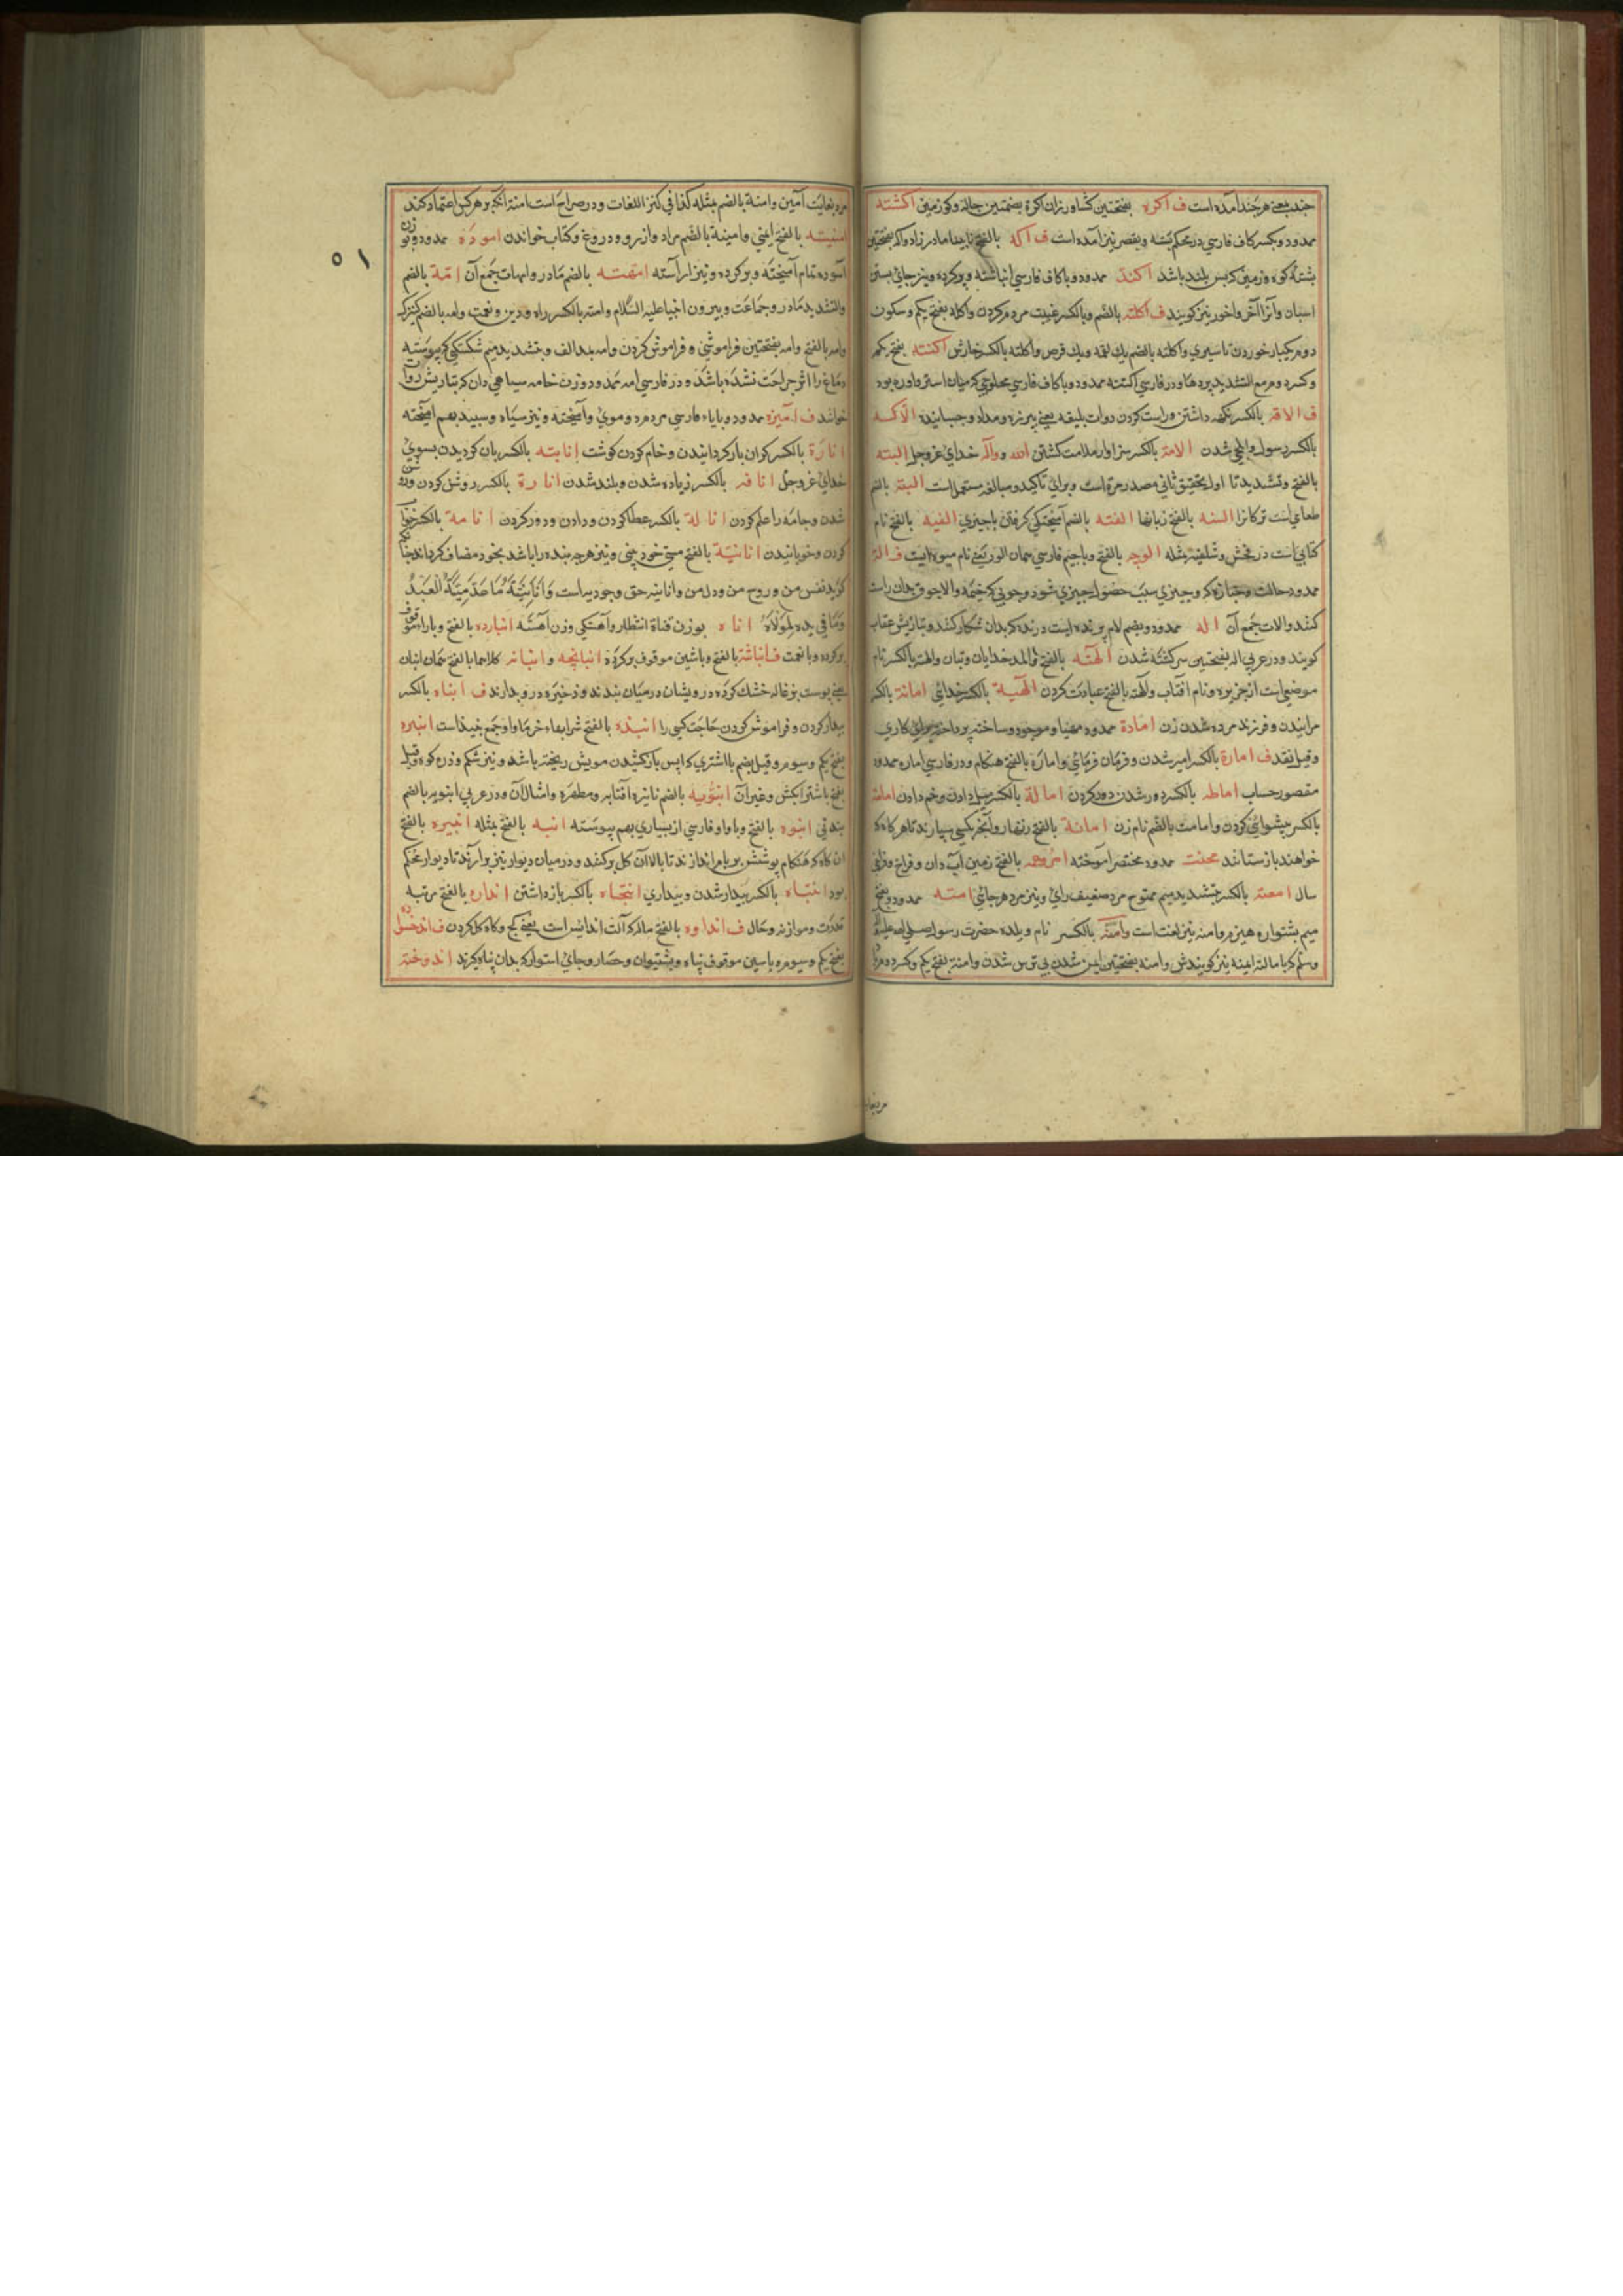 چند یعنی هر چند آمده است ف اکره بفتحتین کشاورزان اکرة بضمتین چاله و کو زمین اکشته
ممدود و بکسر کاف فارسی در محکم بسته و بقصر نیز آمده است ف اکه بالفتح نابینا مادرزاد واکه بفتحتین
پشته کوه و زمینی که پس بلند باشد اکنه ممدود و با کاف فارسی انباشته و پر کرده و نیز جای بستن
اسبان و آنرا آخر و آخور نیز کویند ف اکلته بالضم وبالکسر غیبت مردم کردن واکله بفتح یکم و سکون
دوم یکبار خوردن تا سیری واکلته بالضم یك لقمه ویك قرص واکلته بالکسر خارش اکنته بفتح یکم
وکسر دوم مع التشدید پردها ودر فارسی اکنته ممدود و با کاف فارسی
ف الاقه بالکسر نکه داشتن و راست کردن دوات بلیقه یعنی و مداد و چسبانیدن الاکه
بالکسر رسول و ایلچی شدن الامة بالکسر سزاوار ملامت کشتن الله و واله خدای عز و جل البته
بالفتح و تشدید تا اول بتحقیق ثانی مصدر مرة است و برای تاکید و مبالغه مستعمل است البته بالضم
طعامی است ترکانرا السنه بالفتح زبانها الفته بالضم آمیختکی کرفتن با چیزی الفیه بالفتح نام
کتابی است در فحش و شلفیه مثله الوچه بالفتح و با جیم فارسی همان الوز یعنی نام میوه ایست ف الة
ممدود حالت و جنازه که و چیزی سبب حصول چیزی شود و چوبی که خیمه والاچوق بدان راست
کنند والات جمع آن اله ممدود و بضم لام پرنده ایست درنده که بدان شکار کنند و بتازیش عقاب
کویند و در عربی اله بفتحتین سرکشته شدن الهته بالفتح والمد خدایان و بتان والهته بالکسر نام
موضعی است از جزیره و نام افتاب والهته بالفتح عبادت کردن الهیة بالکسر خدائی اماتة بالکسر
میرانیدن و فرزند مرده شدن زن امادة ممدود مهیا و موجود و ساخته و پرداخته برای کاری
و قیل نقد ف امارة بالکسر امیر شدن و فرمان فرمائی وامارة بالفتح هنکام و در فارسی اماره ممدود
مقصور حساب اماطه بالکسر دور شدن و دور کردن امالة بالکسر میل دادن و خم دادن امامة
بالکسر پیشوائی کردن وامامت بالضم نام زن امانة بالفتح زنهار و آنچه بکسی بسپارند تا هر کاه که
خواهند بازستانند محنت ممدود مختصر آموخته امروحه بالفتح زمین آب دان و فراخ و فراخی
سال امعة بالکسر بتشدید میم مفتوح مرد ضعیف رای و نیز مرد هر جائی امنه ممدود و بفتح
میم پشتواره هیزم و امنه نیز لغت است وآمنة بالکسر نام والده حضرت رسول صلی الله علیه
وسلم که با مالته ایمنه نیز کویندش وامنه بفتحتین ایمن شدن بی ترس شدن وامنة بفتح یکم و کسر دوم مرد
مرد بغایت
مرد بغایت آمین وامنة بالضم مثله کذا فی کنز اللغات و در صراح است امنة آنکه بر هر کس اعتماد کند
امنیته بالفتح ایمنی وامنیة بالضم مراد وآرزو و دروغ و کتاب خواندن اموده ممدود و بوزن
آسوده تمام آمیخته و پر کرده و نیز آراسته امهته بالضم مادر وامهات جمع آن امة بالضم
والتشدید مادر و جماعت و پیرون انبیا علیه السلام وامته بالکسر راه و دین و نعمت وامه بالضم کنیزک
وامه بالفتح وامه بفتحتین فراموشی و فراموش کردن وامه بمد الف و بتشدید میم شکستکی که پیوسته
دماغ را اثر جراحت نشده باشد و در فارسی امه ممدود و وزن خامه سیاهی دان که بتازیش دوات
خوانند ف آمیزه ممدود و با یاء فارسی مردم دو موی و آمیخته و نیز سیاه و سپید بهم آمیخته
انارة بالکسر کران بار کردانیدن و خام کردن کوشت إنابته بالکسر باز کردیدن بسوی
خدای عز و جل انافه بالکسر زیاده شدن و بلند شدن انارة بالکسر روشن کردن و روشن
شدن و جامه را علم کردن انالة بالکسر عطا کردن و دادن و دور کردن انامة بالکسر خواب
کردن و خوابانیدن انانیّة بالفتح منی خودبینی و نیز هر چه بنده را باشد بخود مضاف کرداند چنانکه
کوید نفس من و روح من و دل من وانانیة حق وجودیه است وَأَنَانِيَّةُ مَا صَدَمِيَّةُ الْعَبْدُ
وَمَا فِي يَدِهِ لِمَوْلَاهُ اناه بوزن قناة انتظار و آهستکی و زن آهسته انبارده بالفتح و با راء موقوف
پر کرده و با نعمت ف انباشته بالفتح و با شین موقوف پر کرده انبانچه و انبانه کلاهما بالفتح همان انبان
یعنی پوست بزغاله خشك کرده درویشان در میان بندند و ذخیره درو دارند ف انباه بالکسر
بیدار کردن و فراموش کردن حاجت کسی را انبذه بالفتح شرابهاء خرما و او جمع نبیذ است انبره
بفتح یکم و سیوم و قیل بضم با اشتری که از پس بار کشیدن مویش ریخته باشد و نیز شکم و دره کوه و قیل
بفتح با شتر آبکش و غیر آن انبوبه بالضم نایزه آفتابه و مطهره و امثال آن و در عربی انبوبه بالضم
بند نی انبوه بالفتح و با واو فارسی از بسیاری بهم پیوسته انبه بالفتح مثله انبیره بالفتح
آن کاه که هنکام پوشش بر بام اندازند تا بالاء آن کل برکنند و در میان دیوار نیز برآرند تا دیوار محکم
بود انتباه بالکسر بیدار شدن و بیداری انتجاه بالکسر باز داشتن انداره بالفتح مرتبه
قدرت و موازنه و حال ف انداوه بالفتح ماله که آلت اندائش است یعنی کج و کاه کل کردن ف اندخسواره
بفتح یکم و سیوم و با سین موقوف پناه و پشتیوان و حصار و جای استوار که بدان پناه کیرند اندوخته
٥١